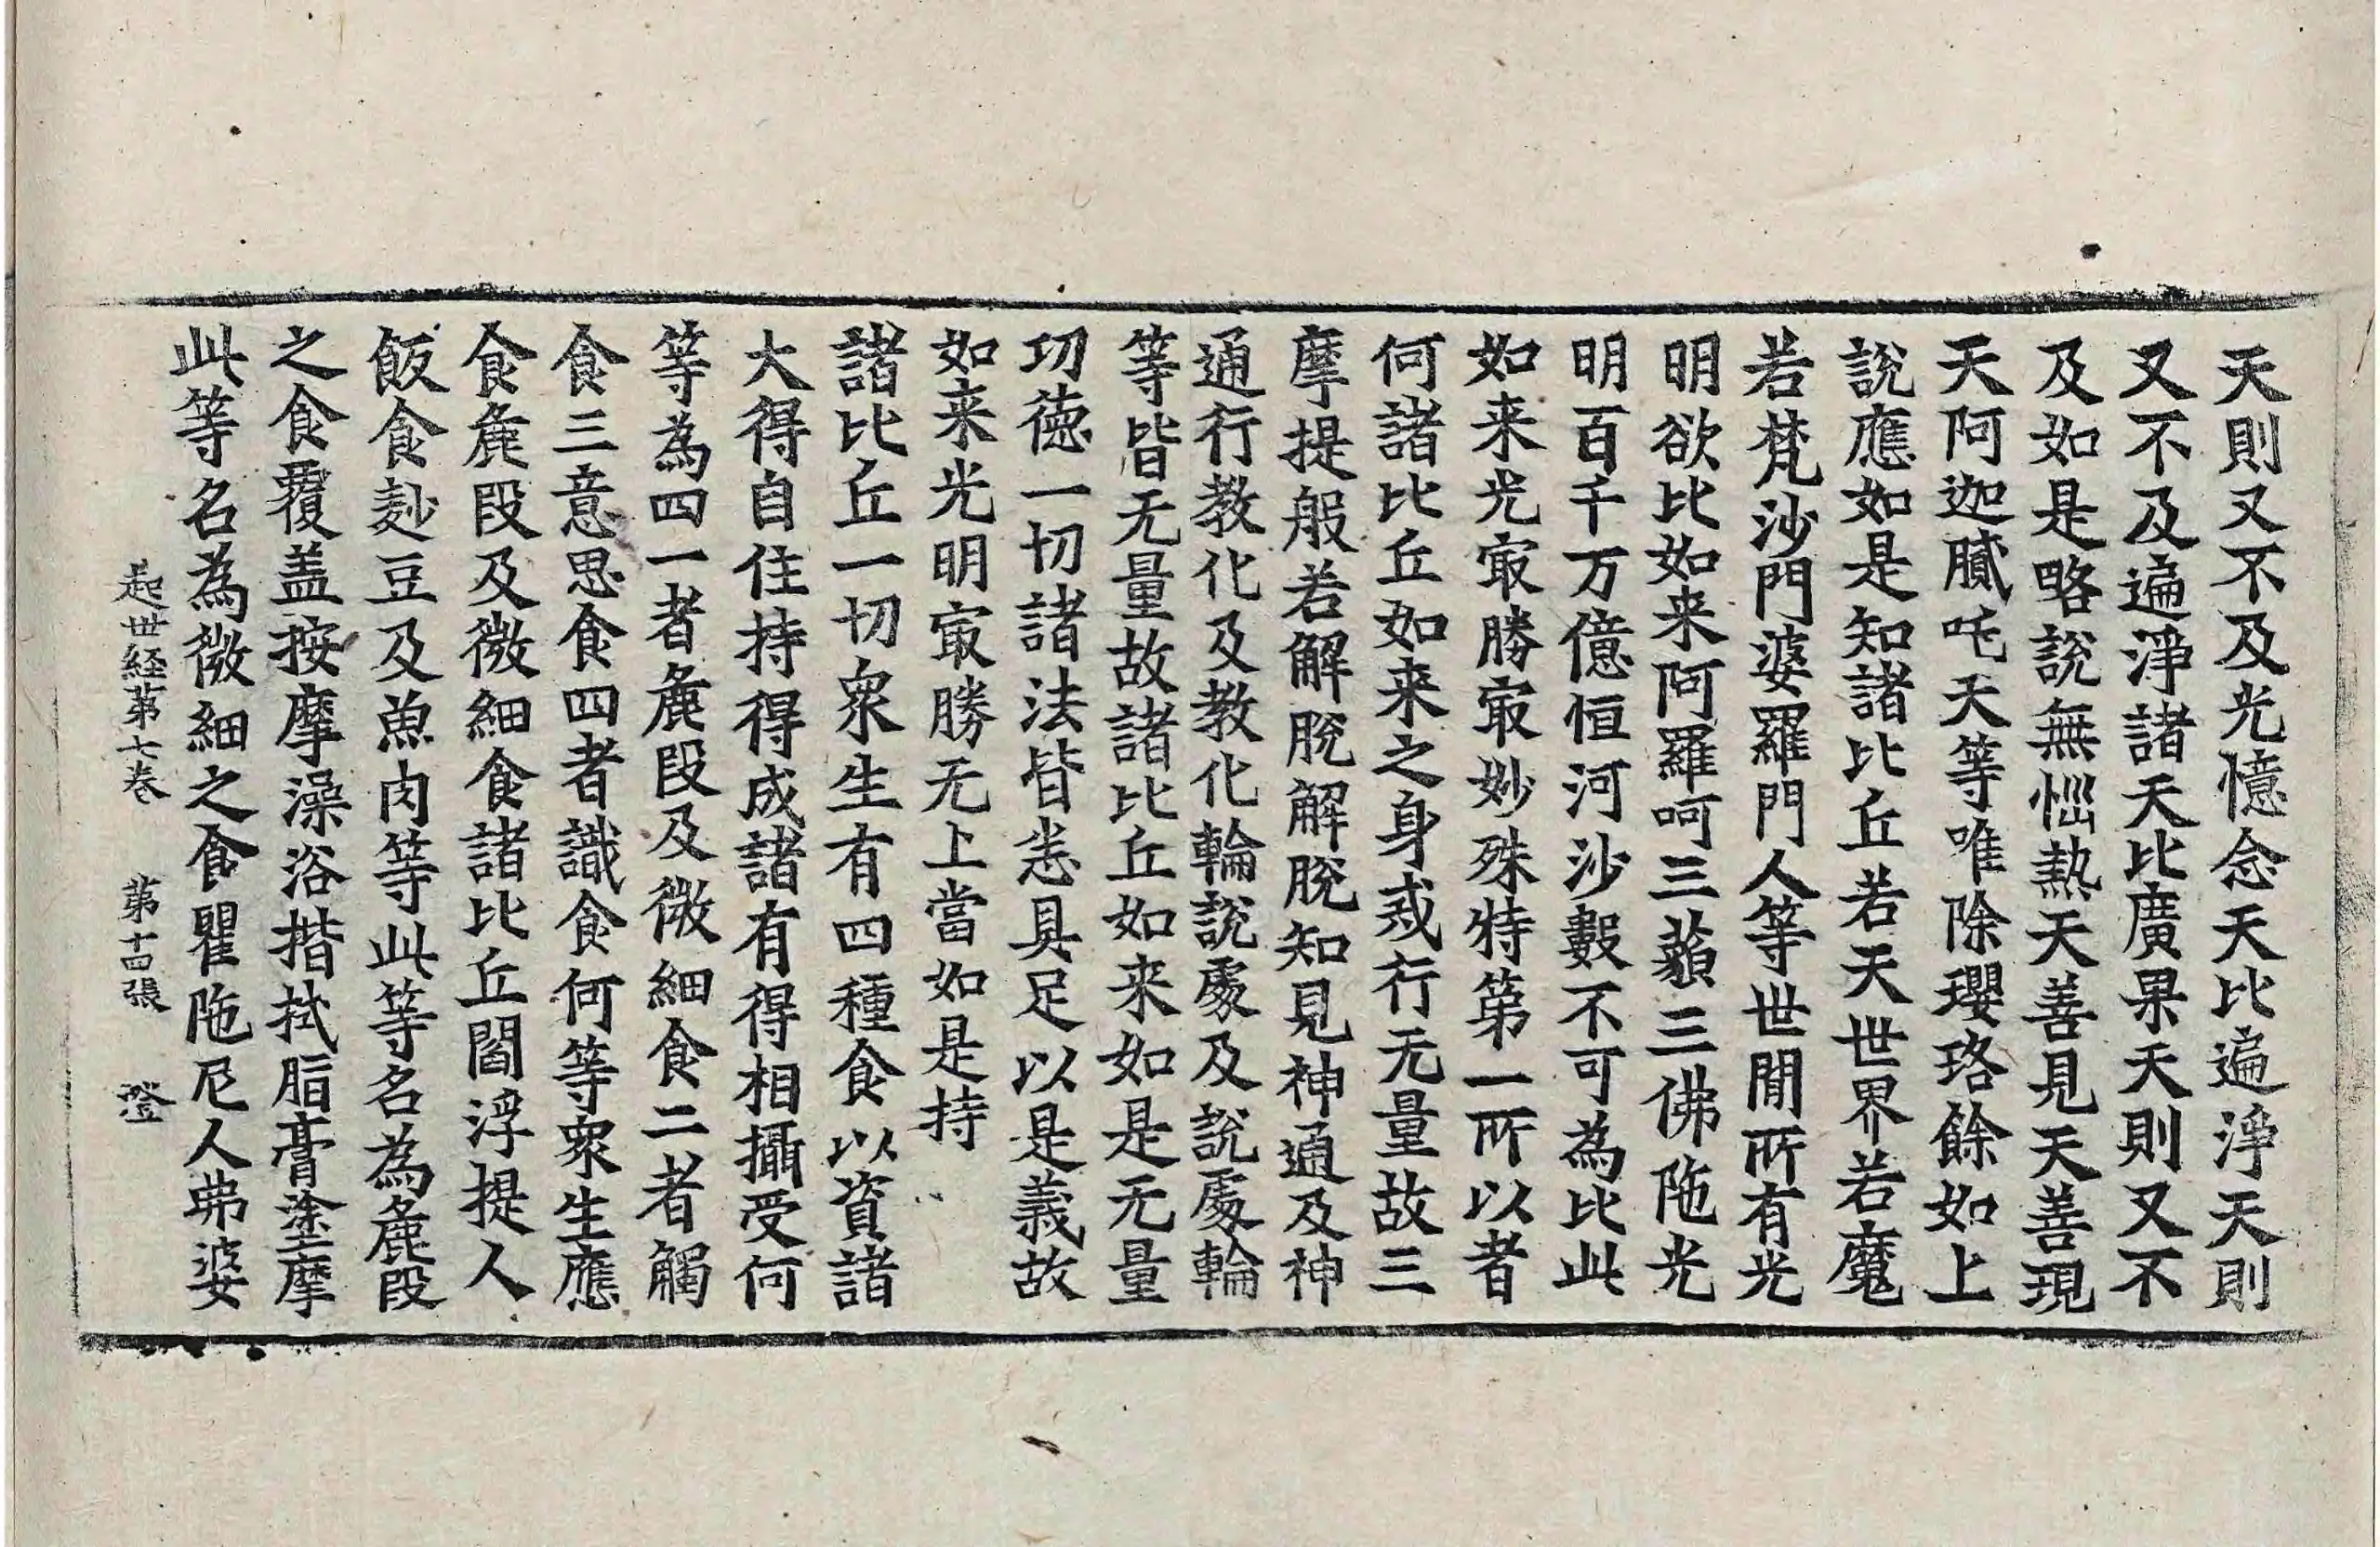 天則又不及光憶念天比遍淨天則
又不及遍淨諸天比廣果天則又不
及如是略說無惱熱天善見天善現
天阿迦膩吒天等唯除瓔珞餘如上
說應如是知諸比丘若天世界若魔
若梵沙門婆羅門人等世間所有光
明欲比如来阿羅呵三藐三佛陁光
明百千万億恒河沙數不可為比此
如来光㝡勝㝡妙殊特第一所以者
何諸比丘如来之身戒行无量故三
摩提般若解脫解脫知見神通及神
通行教化及教化輪說處及說處輪
等皆无量故諸比丘如来如是无量
功德一切諸法皆悉具足以是義故
如来光明㝡勝无上當如是持
諸比丘一切衆生有四種食以資諸
大得自住持得成諸有得相攝受何
等為四一者麁段及微細食二者觸
食三意思食四者識食何等衆生應
食麁段及微細食諸比丘閻浮提人
飯食麨豆及魚肉等此等名為麁段
之食覆盖按摩澡浴揩拭脂膏塗摩
此等名為微細之食瞿陁尼人弗婆
起世経第七卷　第十四張　澄